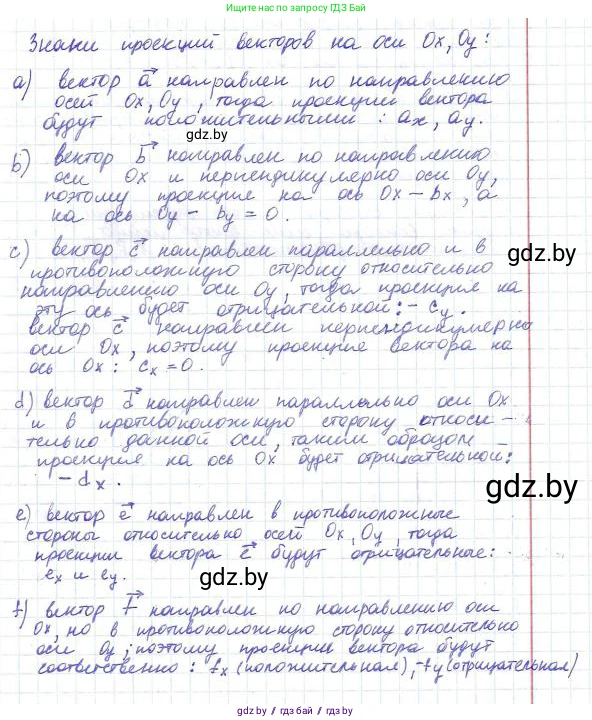 получить больше по запросу ГДЗ Бай
Знаки проекций векторов на оси Ox, Oy:
a) вектор a направлен по направлению
осей Ox, Oy, тогда проекции вектора
будут положительными: ax, ay.
gdz.by
b) вектор b направлен по направлению
оси Ox и перпендикулярно оси Oy,
поэтому проекция на ось Ox – bx, а
на ось Oy – by = 0.
c) вектор c направлен параллельно и в
gdz.by
противоположную сторону относительно
направлению оси Oy, тогда проекция на
эту ось будет отрицательной: – cy.
вектор c направлен перпендикулярно
оси Ox, поэтому проекция вектора на
ось Ox: cx = 0.
d) вектор d направлен параллельно оси Ox
и в противоположную сторону относи-
тельно данной оси, таким образом
проекция на ось Ox будет отрицательной:
– dx.
gdz.by
e) вектор e направлен в противоположные
стороны относительно осей Ox, Oy, тогда
проекции вектора e будут отрицательные:
ex и ey.
gdz.by
f) вектор f направлен по направлению оси
Ox, но в противоположную сторону относительно
оси Oy, поэтому проекции вектора будут
соответственно: fx (положительная), -fy (отрицательная)
gdz.by / гдз бай / gdz.by